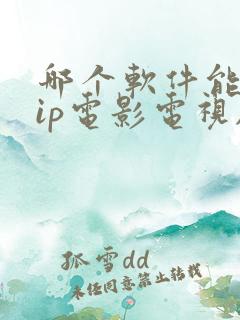 哪个軟件能
ip電影電視
孤雪dd
未经同意禁止转载